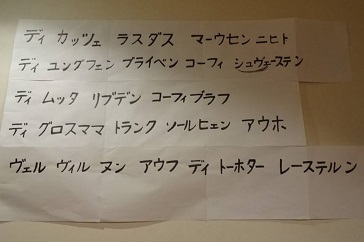 ディ カッツェ ラスダス マーウセン ニヒト
ディ ユングフェン ブライベン コーフィ シュヴェーステン
ディ ムッタ リブデン コーフィブラフ
ディ グロスママ トランク ソールヒェン アウホ
ヴェル ヴィル ヌン アウフ ディ トーホター レーステルン